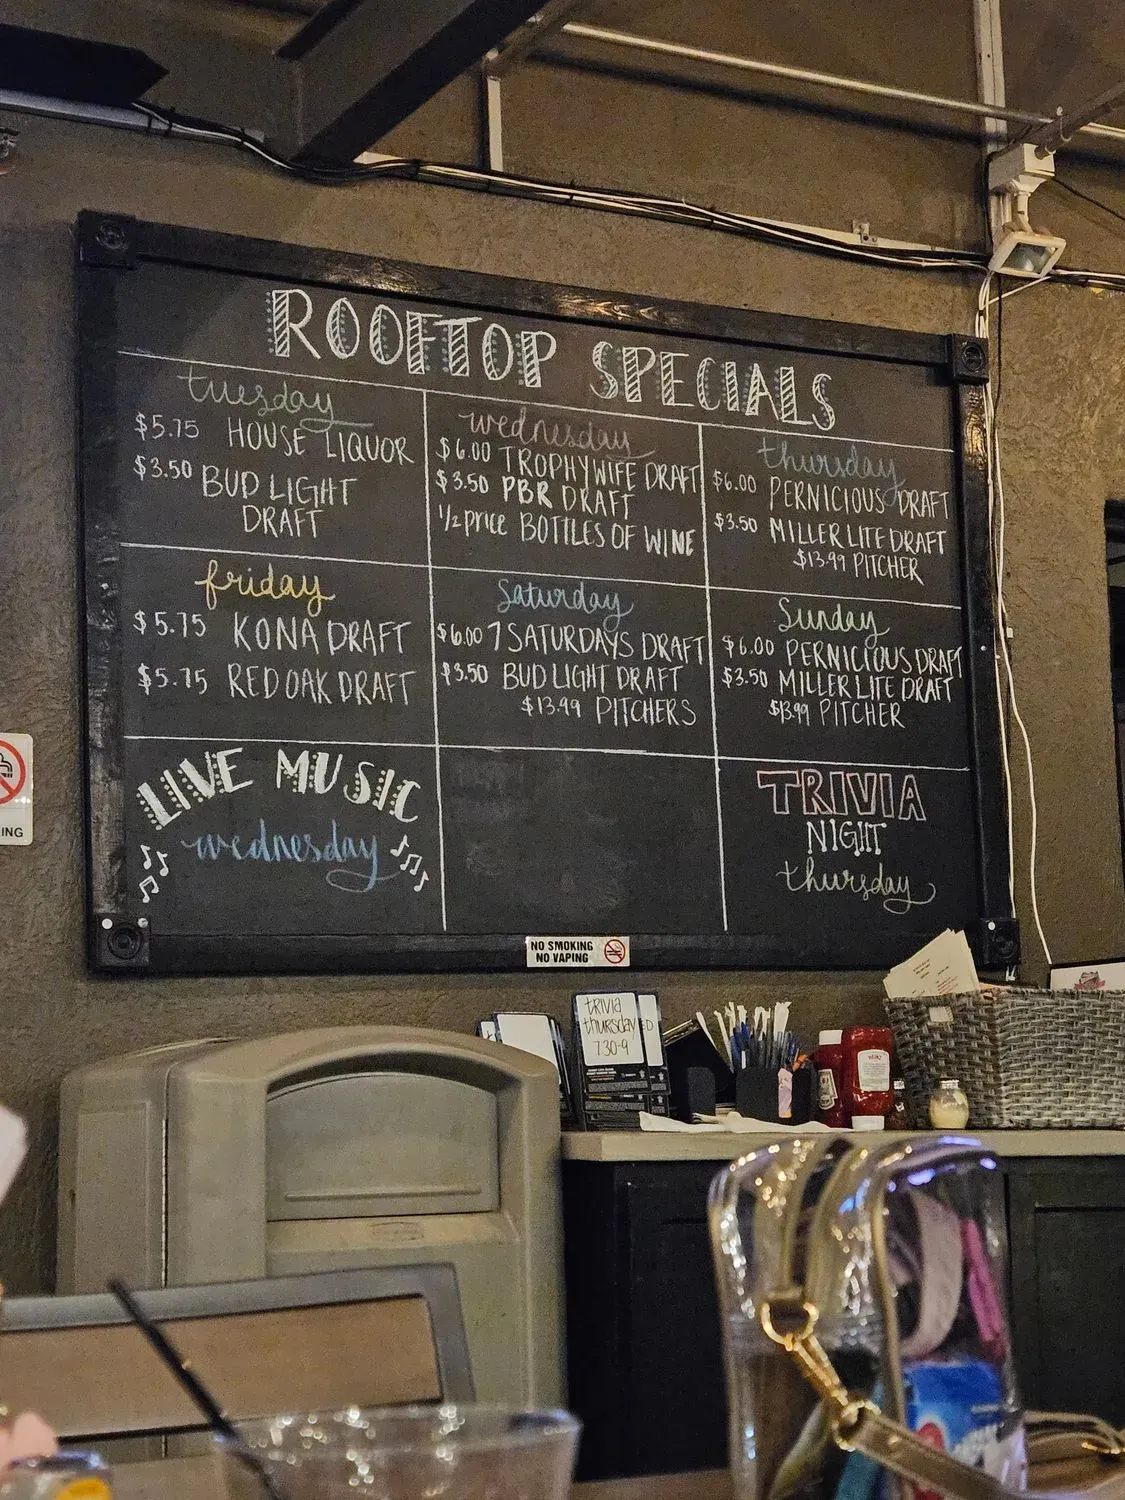 ROOFTOP SPECIALS
tuesday
$5.75 HOUSE LIQUOR
$3.50 BUD LIGHT
DRAFT
wednesday
$6.00 TROPHY WIFE DRAFT
$3.50 PBR DRAFT
1/2 price BOTTLES OF WINE
thursday
$6.00 PERNICIOUS DRAFT
$3.50 MILLER LITE DRAFT
$13.99 PITCHER
friday
$5.75 KONA DRAFT
$5.75 RED OAK DRAFT
Saturday
$6.00 7 SATURDAYS DRAFT
$3.50 BUD LIGHT DRAFT
$13.99 PITCHERS
Sunday
$6.00 PERNICIOUS DRAFT
$3.50 MILLER LITE DRAFT
$13.99 PITCHER
LIVE MUSIC
wednesday
TRIVIA
NIGHT
thursday
NO SMOKING
NO VAPING
ING
trivia
thursday
7:30-9
HEINZ